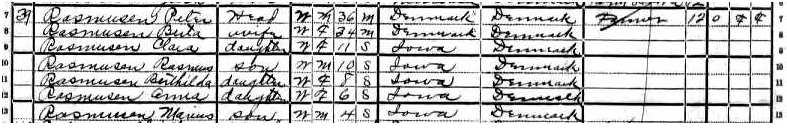 7 39 Rasmusen Peter Head W M 36 M Denmark Denmark Farmer 12 0 7
8 Rasmusen Beta wife W F 34 M Denmark Denmark 8
9 Rasmusen Clara daughter W F 11 S Iowa Denmark 9
10 Rasmusen Rasmus son W M 10 S Iowa Denmark 10
11 Rasmusen Berthilda daughter W F 8 S Iowa Denmark 11
12 Rasmusen Anna daughter W F 6 S Iowa Denmark 12
13 Rasmusen Marius son W M 4 S Iowa Denmark 13